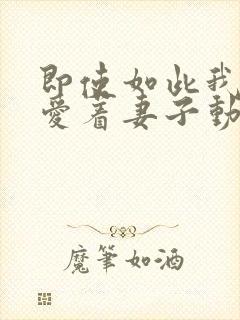 即使如此我
爱着妻子動
魔筆如酒